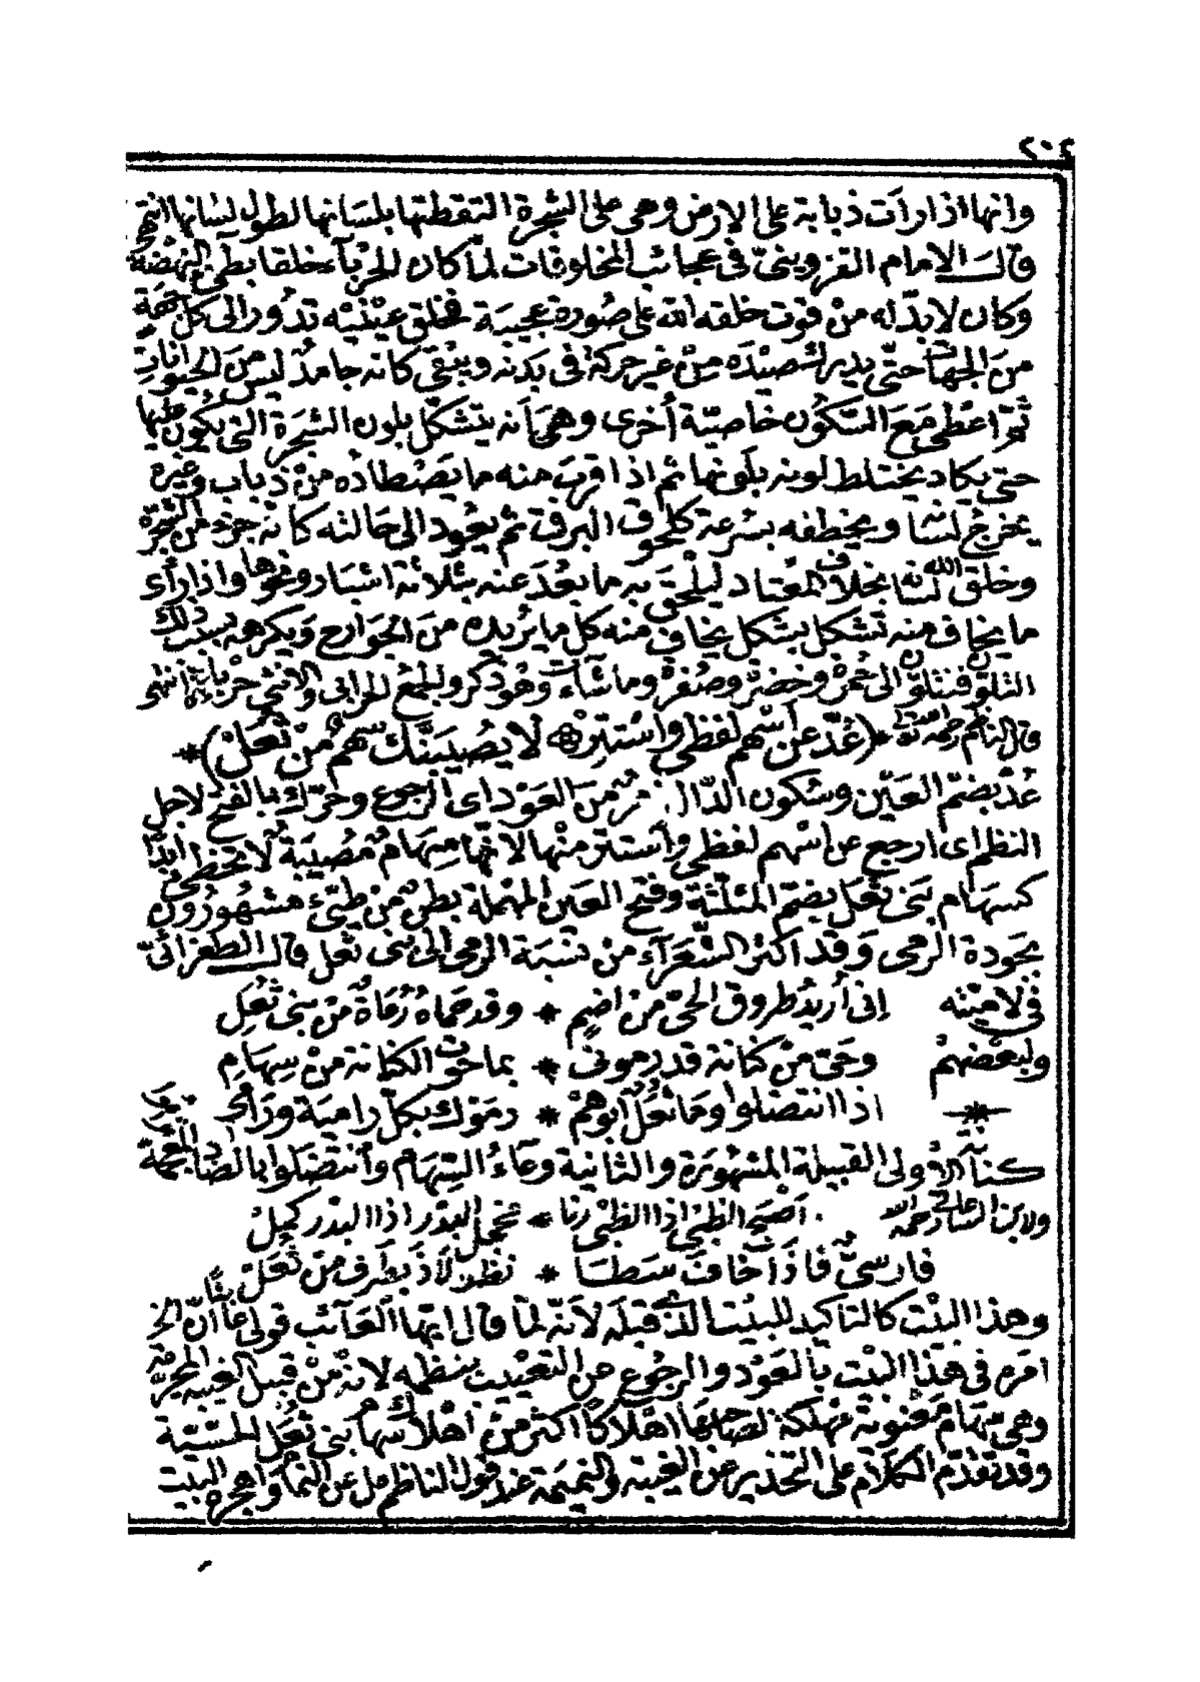 ٢٠٤
وانها اذا رأت ذبابة على الارض وهى على الشجرة التقطتها بلسانها لطول لسانها انتهى
قال الامام القزوينىّ فى عجائب المخلوقات لمّا كان الحرباء خلقا بطىء النهضة
وكان لا بدّ له من قوت خلقه الله على صورة عجيبة فخلق عينيه تدور الى كل جهة
من الجهات حتّى يدرك صيده من غير حركة فى بدنه ويبقى كانه جامد ليس من الحيوانات
ثمّ اعطى مع السّكون خاصيّة أخرى وهى انه يتشكّل بلون الشجرة التى يكون عليها
حتى يكاد يختلط لونه بلونها ثم اذا قرب منه ما يصطاده من ذباب وغيره
يخرج لسانه ويخطفه بسرعة كلحوق البرق ثم يعود الى حالته كانه جزء من الشجرة
وخلق الله لسانه بخلاف المعتاد ليلحق به ما بعد عنه بثلاثة اشبار ونحوها واذا رأى
ما يخاف منه تشكل بشكل يخاف منه كل ما يريده من الجوارح ويكرهه بذلك
التلوّن فيتلوّن الى حمرة وخضرة وصفرة وما شاء وهو ذكر والجمع الحرابى والانثى حرباءة انتهى
قال الناظم رحمه الله تعالى ✻ (عُدّ عن أسهم لفظى واستتر ✻ لا يصيبنّك سهم من ثُعَل) ✻
عُدْ بضمّ العين وسكون الدّال امر من العود اى الرجوع وحرّك بالفتح لاجل
النظم اى ارجع عن اسهم لفظى واستتر منها لانّها سهام مصيبة لا تخطى ابدًا
كسهام بنى ثُعَل بضمّ المثلّثة وفتح العين المهملة بطن من طيّىء مشهورون
بجودة الرمى وقد اكثر الشّعراء من نسبة الرمى الى بنى ثعل قال الطغرائىّ
فى لاميّته انى أريد طروق الحىّ من اضم ✻ وقد حماه رماة من بنى ثعل
ولبعضهم وحىّ من كنانة قد رمونى ✻ بما حوت الكنانة من سهام
✻ اذا انتضلوا وما ثعل ابوهم ✻ رموك بكلّ رامية ورامى
كنانة الاولى القبيلة المشهورة والثانية وعاء السّهام وانتضلوا بالضاد المعجمة
ولابن الساعاتى رحمه الله اصيد الظبى اذا الظبى رنا ✻ مخجل البدر اذا البدر كمل
فارسىّ فاذا خافت سطا ✻ نظرة لاذ بطرف من ثعل
وهذا البيت كالتاكيد للبيت الذى قبله لانّه لمّا قال ايّها العآئب قولى عابثا انّ الخ
امره فى هذا البيت بالعود والرجوع عن التعييب بنظمه لانه من قبيل الغيبة المحرّمة
وهى سهام معنوية مهلكة لصاحبها اهلاكًا اكثر من اهلاك سهام بنى ثعل الحسّيّة
وقد تقدّم الكلام على التحذير من الغيبة والنميمة عند قول الناظم مل عن النمّام واهجره البيت